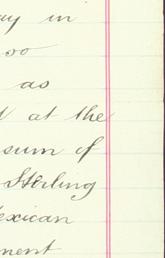 ay in
00
as
d at the
sum of
Sterling
exican
ment